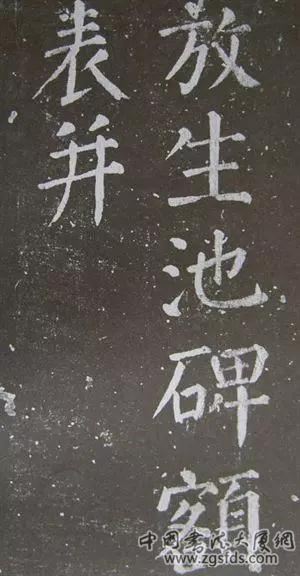 放生池碑額
表并
中国书法大展网
www.zgsfds.com